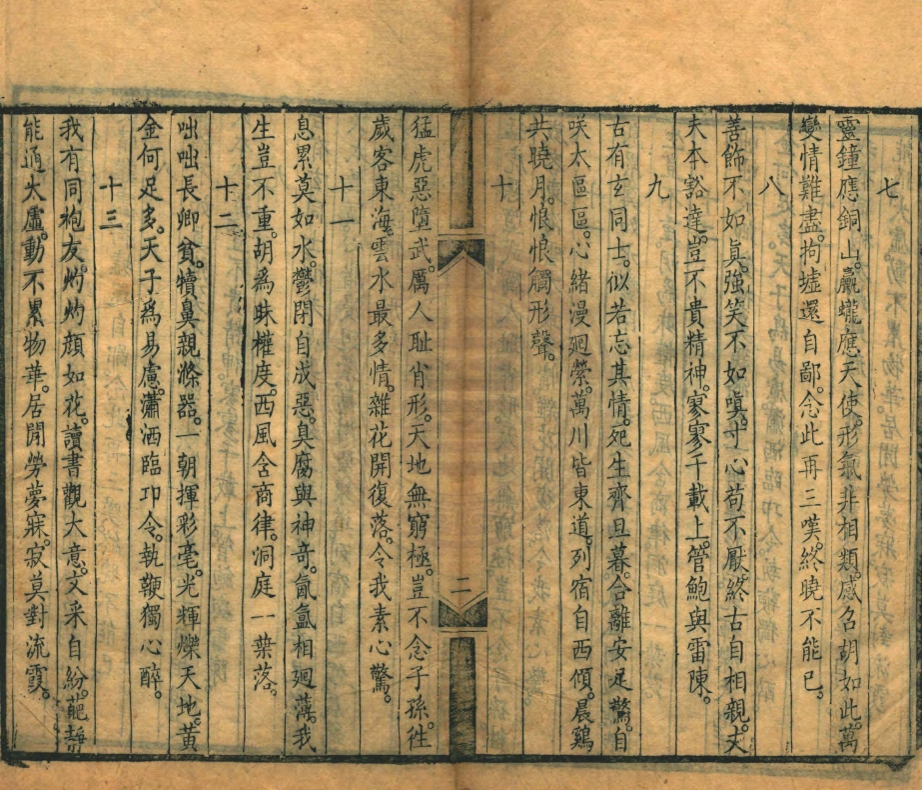 七
靈鐘應銅山。蠃蠬應天使。形氣非相類。感召胡如此。萬
變情難盡。拘墟還自鄙。念此再三嘆。終曉不能巳。
八
善飾不如真。強笑不如嗔。寸心苟不厭。終古自相親。丈
夫本豁達。豈不貴精神。寥寥千載上。管鮑與雷陳。
九
古有玄同士。似若忘其情。死生齊旦暮。合離安足驚。自
咲太區區。心緒漫廻縈。萬川皆東道。列宿自西傾。晨鷄
共曉月。悢悢觸形聲。
十
猛虎惡墮武。厲人耻肖形。天地無窮極。豈不念子孫。徃
歲客東海。雲水最多情。雜花開復落。令我素心驚。
十一
息累莫如水。鬱閉自成惡。臭腐與神奇。氤氲相廻薄。我
生豈不重。胡爲昧權度。西風含商律。洞庭一葉落。
十二
咄咄長卿貧。犢鼻親滌器。一朝揮彩毫。光輝爍天地。黃
金何足多。天子爲易慮。瀟洒臨卭令。執鞭獨心醉。
十三
我有同袍友。灼灼顔如花。讀書觀大意。文采自紛葩。靜
能通太虛。動不累物華。居閒勞夢寐。寂莫對流霞。
二